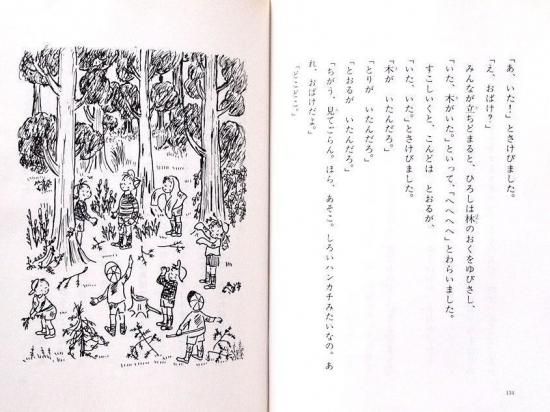 「あ、いた！」とさけびました。
「え、おばけ？」
みんなが立ちどまると、ひろしは林のおくをゆびさし、
「いた、木がいた。」といって、「へへへへ」とわらいました。
すこしいくと、こんどは とおるが、
「いた、いた。」とさけびました。
「木が いたんだろ。」
「とりが いたんだろ。」
「とおるが いたんだろ。」
「ちがう、見てごらん。ほら、あそこ。しろいハンカチみたいなの。あ
れ、おばけだよ。」
「どこどこ？」